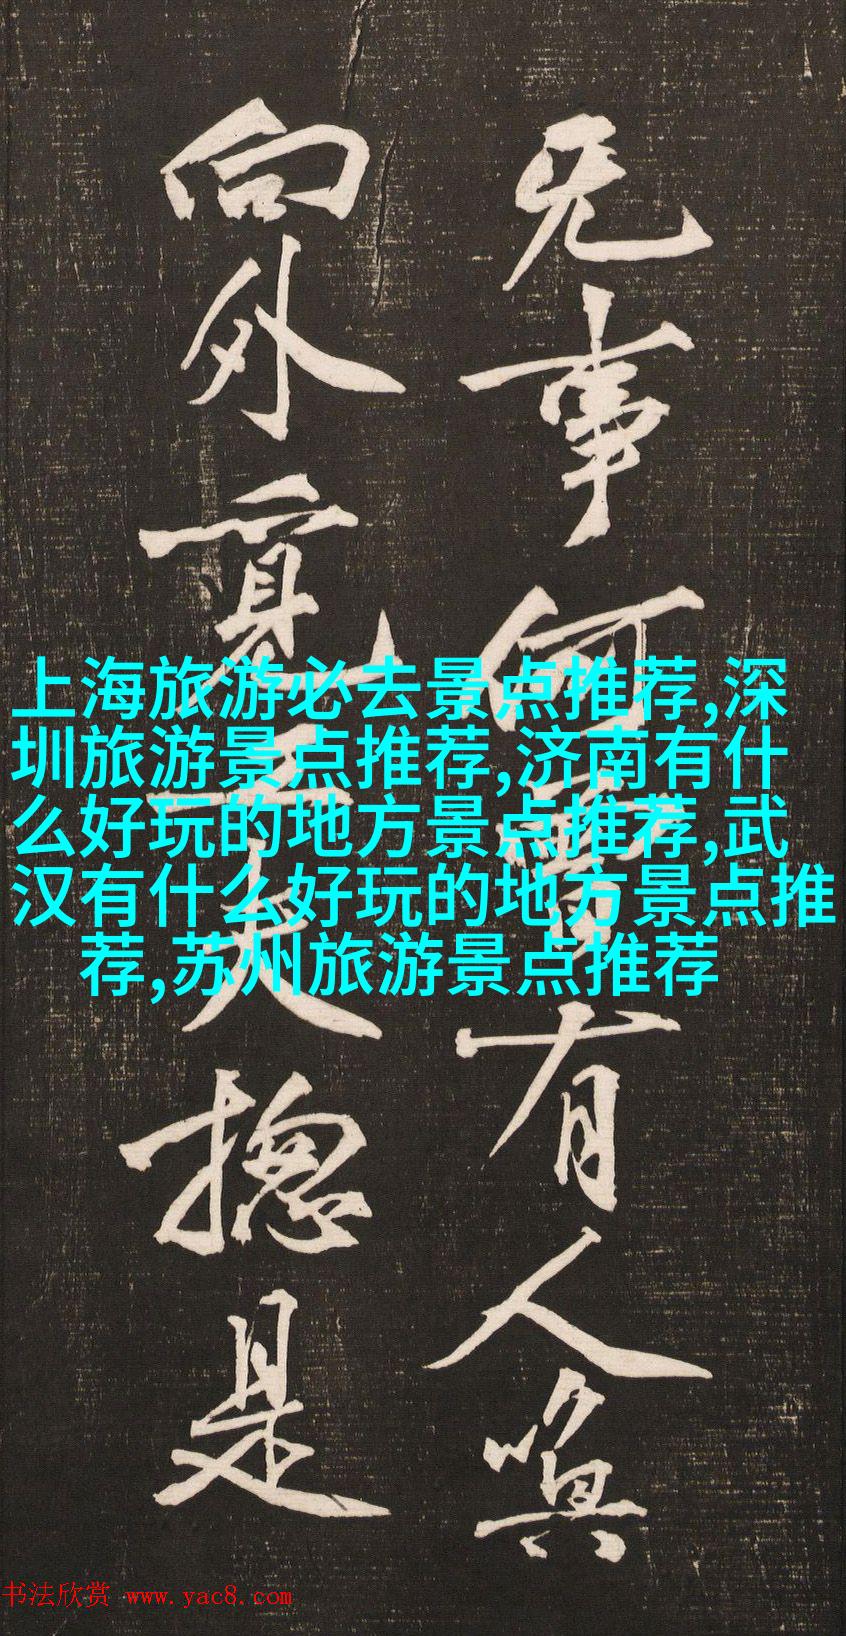 无事何曾有人嗔
向外覓工夫揔是
上海旅游必去景点推荐,深
圳旅游景点推荐,济南有什
么好玩的地方景点推荐,武
汉有什么好玩的地方景点推
荐,苏州旅游景点推荐
书法欣赏 www.yac8.com